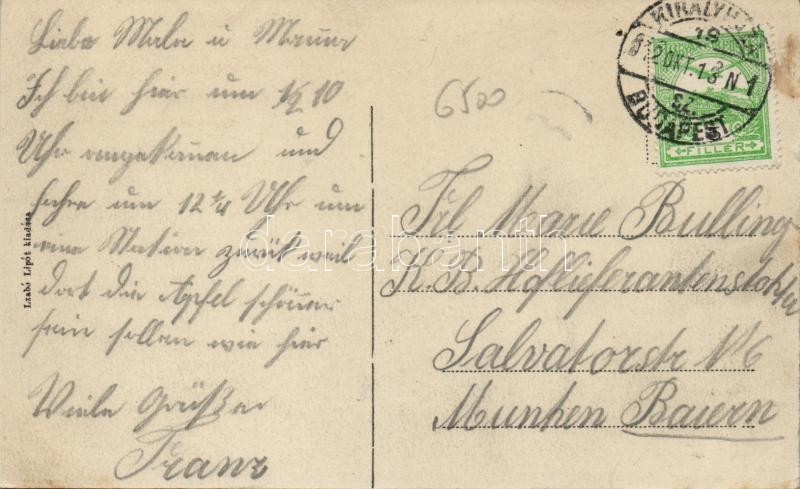 Liebe Male u Mama
Ich bin hier um ½10
Uhr angekommen und
fahre um 12 ¼ Uhr um
eine Station zurück weil
dort die Äpfel schöner
sein sollen wie hier
Viele Grüße
Franz
Lzabó Lipót kiadása
6500
KIRÁLYH
12 OKT. 13 N 1
SZ.
BUDAPEST
FILLER
Frl Marie Bulling
K. B. Hoflieferantenstochter
Salvatorstr No 6
Munhen Baiern
darabanth